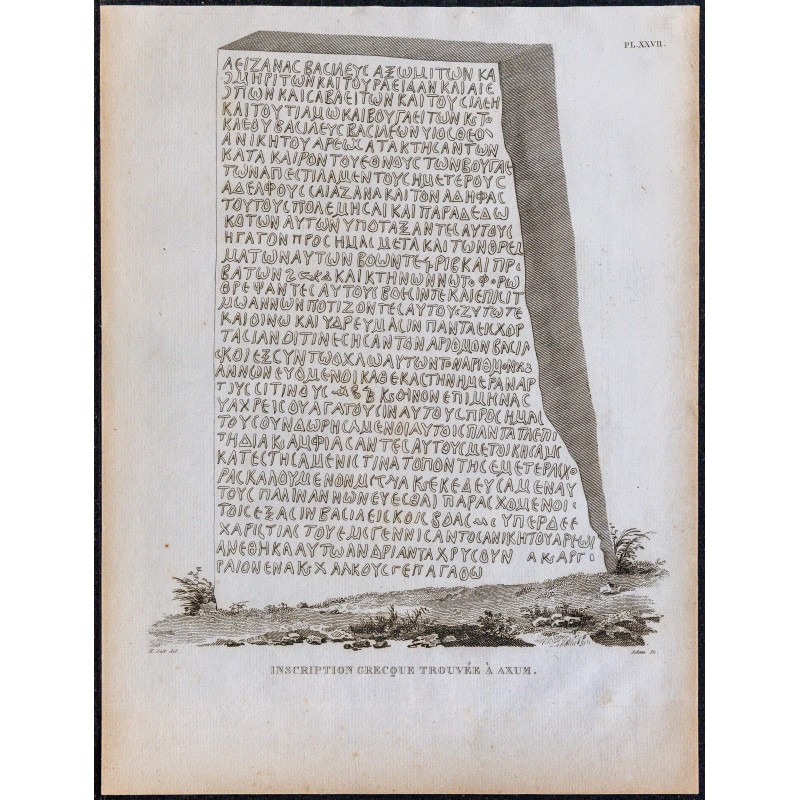 PL.XXVII.
ΑΕΙΖΑΝΑC ΒΑCΙΛΕΥC ΑΞⲰΜΙΤⲰΝ ΚΑ
ΟΜΗΡΙΤⲰΝ ΚΑΙ ΤΟΥ ΡΑΕΙΔΑΝ ΚΑΙ ΑΙΕ
ΟΠⲰΝ ΚΑΙ CΑΒΑΕΙΤⲰΝ ΚΑΙ ΤΟΥ CΙΛΕΗ
ΚΑΙ ΤΟΥ ΤΙΑΜⲰ ΚΑΙ ΒΟΥΓΑΕΙΤⲰΝ Κ ΤΟ
ΚΑΕΟΥ ΒΑCΙΛΕΥC ΒΑCΙΛΕⲰΝ ΥΙΟC ΘΕΟ
ΑΝΙΚΗΤΟΥ ΑΡΕⲰC ΑΤΑΚΤΗCΑΝΤⲰΝ
ΚΑΤΑ ΚΑΙΡΟΝ ΤΟΥ ΕΘΝΟΥC ΤⲰΝ ΒΟΥΓΑΕ
ΤⲰΝ ΑΠΕCΤΙΛΑΜΕΝ ΤΟΥC ΗΜΕΤΕΡΟΥC
ΑΔΕΛΦΟΥC CΑΙΑΖΑΝΑ ΚΑΙ ΤΟΝ ΑΔΗΦΑC
ΤΟΥΤΟΥC ΠΟΛΕΜΗCΑΙ ΚΑΙ ΠΑΡΑΔΕΔⲰ
ΚΟΤⲰΝ ΑΥΤⲰΝ ΥΠΟΤΑΞΑΝΤΕC ΑΥΤΟΥC
ΗΓΑΓΟΝ ΠΡΟC ΗΜΑC ΜΕΤΑ ΚΑΙ ΤⲰΝ ΘΡΕΜ
ΜΑΤⲰΝ ΑΥΤⲰΝ ΒΟⲰΝ ΤΕ ΓΡΙΒ ΚΑΙ ΠΡΟ
ΒΑΤⲰΝ ΚΑΙ ΚΤΗΝⲰΝ ΝⲰΤΟΦΟΡⲰ
ΘΡΕΨΑΝΤΕC ΑΥΤΟΥC ΒΟΕCΙΝ ΤΕ ΚΑΙ ΕΠΙCΙΤ
ΜⲰ ΑΝΝⲰΝ ΠΟΤΙΖΟΝΤΕC ΑΥΤΟΥC ΖΥΤⲰ ΤΕ
ΚΑΙ ΟΙΝⲰ ΚΑΙ ΥΔΡΕΥΜΑCΙΝ ΠΑΝΤΑ ΕΙC ΧΟΡ
ΤΑCΙΑΝ ΟΙΤΙΝΕC ΗCΑΝ ΤΟΝ ΑΡΙΘΜΟΝ ΒΑCΙΛ
CΚΟΙ ΕΞ CΥΝ ΤⲰ ΟΧΛⲰ ΑΥΤⲰΝ ΤΟΝ ΑΡΙΘΜΟΝ
ΑΝΝⲰΝΕΥΟΜΕΝΟΙ ΚΑΘ ΕΚΑCΤΗΝ ΗΜΕΡΑΝ ΑΡ
ΤΟΥC CΙΤΙΝΟΥC Κ ΟΙΝΟΝ ΕΠΙ ΜΗΝΑC
ΑΧΡΕΙC ΟΥ ΑΓΑΓΟΥCΙΝ ΑΥΤΟΥC ΠΡΟC ΗΜΑC
ΤΟΥCΟΥΝ ΔⲰΡΗCΑΜΕΝΟΙ ΑΥΤΟΙC ΠΑΝΤΑ ΤΑ ΕΠΙ
ΤΗΔΙΑ Κ ΑΜΦΙΑCΑΝΤΕC ΑΥΤΟΥC ΜΕΤΟΙΚΗCΑΜC
ΚΑΤΕCΤΗCΑΜΕΝ ΙC ΤΙΝΑ ΤΟΠΟΝ ΤΗC ΕΜΕΤΕΡΑC Χ
ΡΑC ΚΑΛΟΥΜΕΝΟΝ ΜΑΤΛΑ Κ ΕΚΕΛΕΥCΑΜΕΝ ΑΥ
ΤΟΥC ΠΑΛΙΝ ΑΝΝⲰΝΕΥΕCΘΑΙ ΠΑΡΑCΧΟΜΕΝΟΙ
ΤΟΙC ΕΞΑCΙΝ ΒΑCΙΛΕΙCΚΟΙC ΒΟΑC ΥΠΕΡ ΔΕ Ε
ΧΑΡΙCΤΙΑC ΤΟΥ ΕΜΕ ΓΕΝΝΙCΑΝΤΟC ΑΝΙΚΗΤΟΥ ΑΡΕⲰC
ΑΝΕΘΗΚΑ ΑΥΤⲰ ΑΝΔΡΙΑΝΤΑ ΧΡΥCΟΥΝ Α Κ ΑΡΓΥ
ΡΑΙΟΝ ΕΝΑ Κ ΧΑΛΚΟΥC Γ ΕΠ ΑΓΑΘⲰ
H. Salt del.
Adam Sc.
INSCRIPTION GRECQUE TROUVÉE À AXUM.